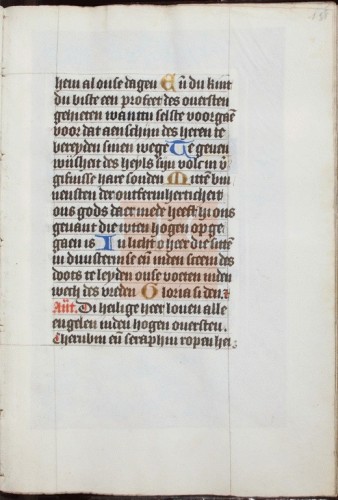 hem al onse dagen Eñ du kint
du biste een profeet des ouersten
gehieten want du selste voorgaē
voor dat aenschijn des heren te
bereyden sinen wege Te geuen
wijsheit des heyls sijn volc in v̄
gifnisse hare sonden Mittē bin
nensten der ontfermherticheit
ons gods daer mede heeft hi ons
genant die wten hogen op ge
gaen is In licht o heer die sittē
in duusternisse eñ inden sceem des
doots te leyden onse voeten inden
wech des vreden Gloria si den.
Añt. Di heilige heer louen alle
engelen inden hogen ouersten.
Cherubin eñ seraphin ropen hei